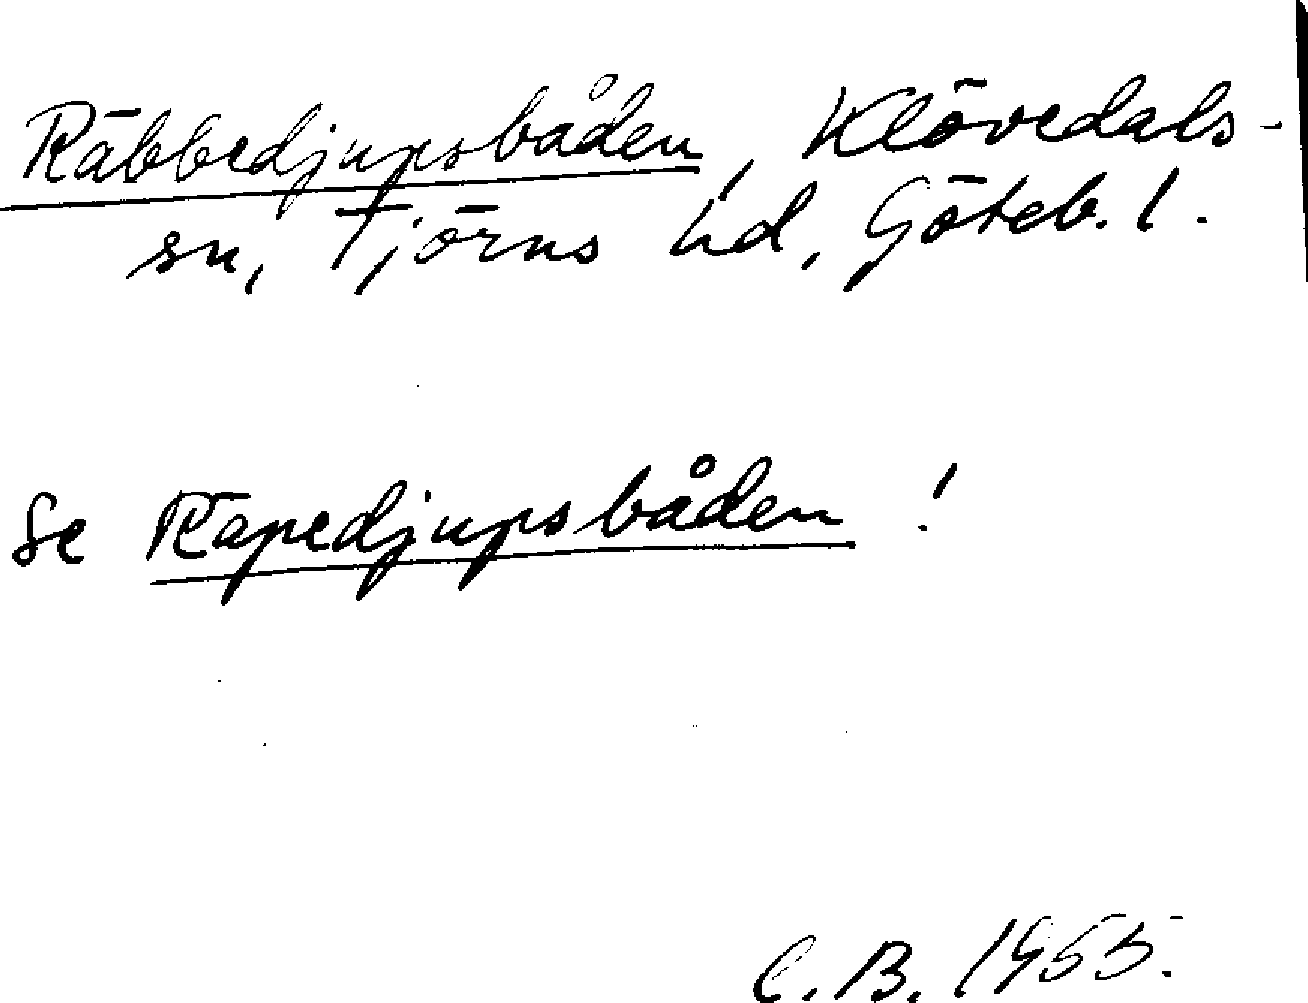 Räbbedjupsbåden, Klövedals-
sn, Tjörns hd, Göteb. l.
Se Räpedjupsbåden !
C. B. 1955.